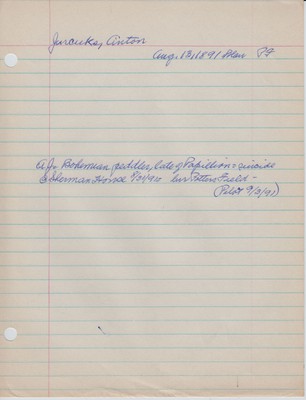 Jurcuka, Anton
Aug. 1891 PF
Bohemian peddler, late of Papillion - suicide
Sherman House bur Potters Field -
(Pilot 9/3/91)